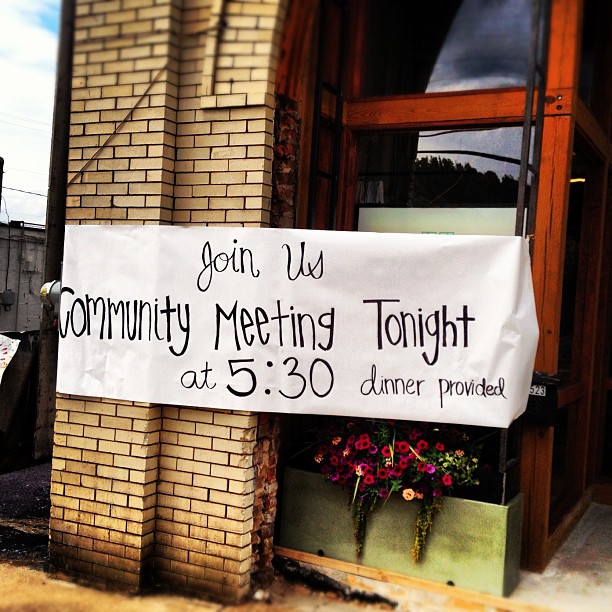 Join Us
Community Meeting Tonight
at 5:30 dinner provided
523